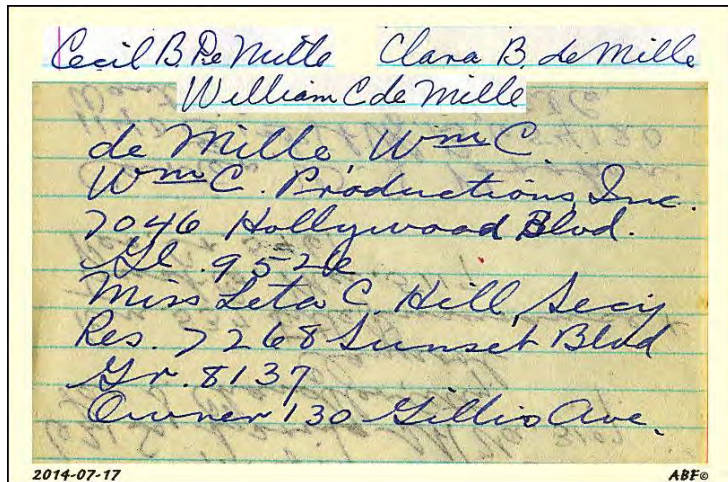 Cecil B. De Mille Clara B. de Mille
William C de Mille
de Mille, Wm C.
Wm C. Productions, Inc.
7046 Hollywood Blvd.
Gl. 9526
Miss Leta C. Hill, Secy
Res. 7268 Sunset Blvd
Gr. 8137
Owner 130 Gillio Ave.
2014-07-17 ABF©